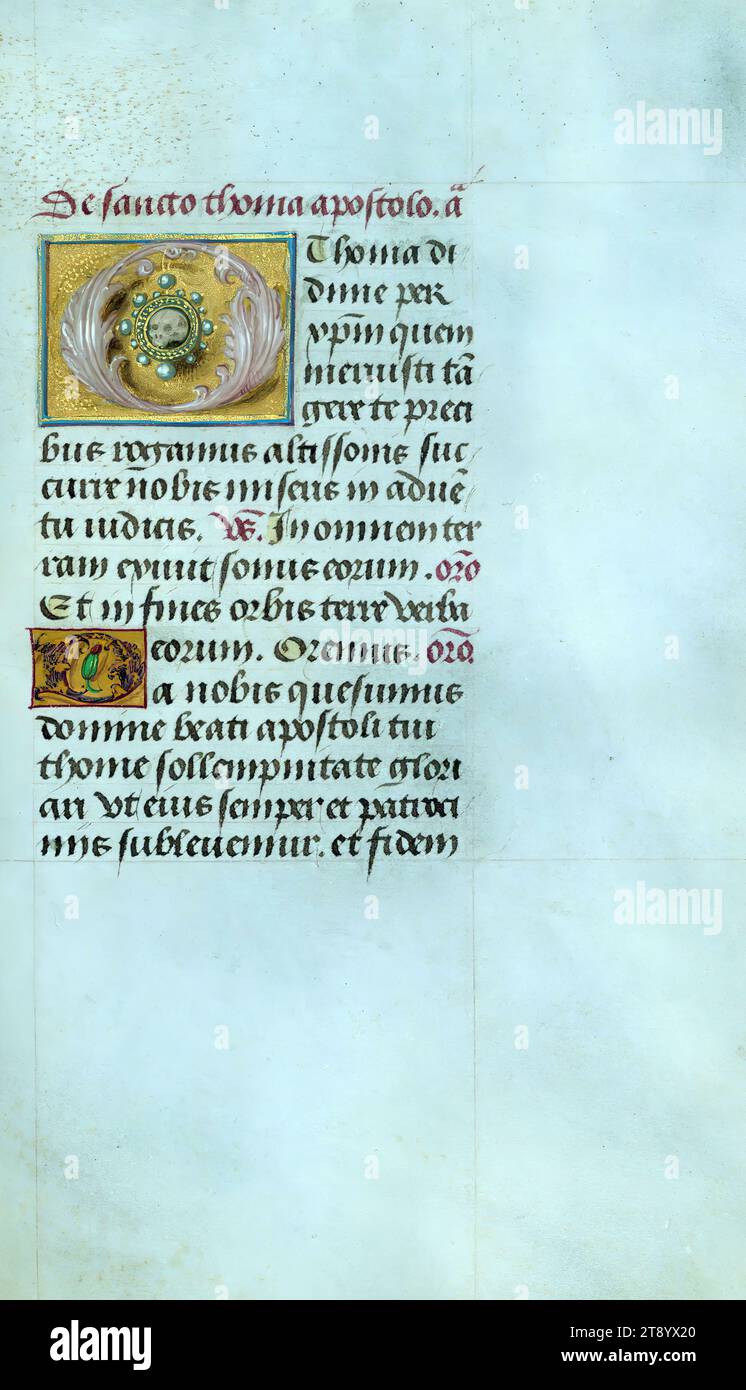 De sancto thoma apostolo. a̅
O Thoma di
dime per
xp̅m quem
meruisti ta̅
gere te preci
bus rogamus altissonis suc
curre n̅obis miseris in adue̅
tu iudicis. Vs̅. In omnem ter
ram exiuit sonus eorum. oro̅
Et in fines orbis terre verba
eorum. Oremus. oro̅.
Da nobis quesumus
domine beati apostoli tui
thome sollempnitate glori
ari vt eius semper et patroci
nijs subleuemur. et fidem
alamy
alamy
a
alamy
Image ID: 2T8YX20
www.alamy.com